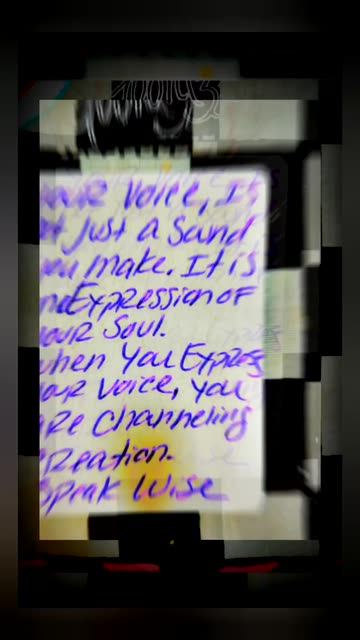 Your Voice, It
not just a Sand
you make. It is
an Expression of
your Soul.
when You Express
your Voice, You
are Channeling
Creation.
Speak Wise